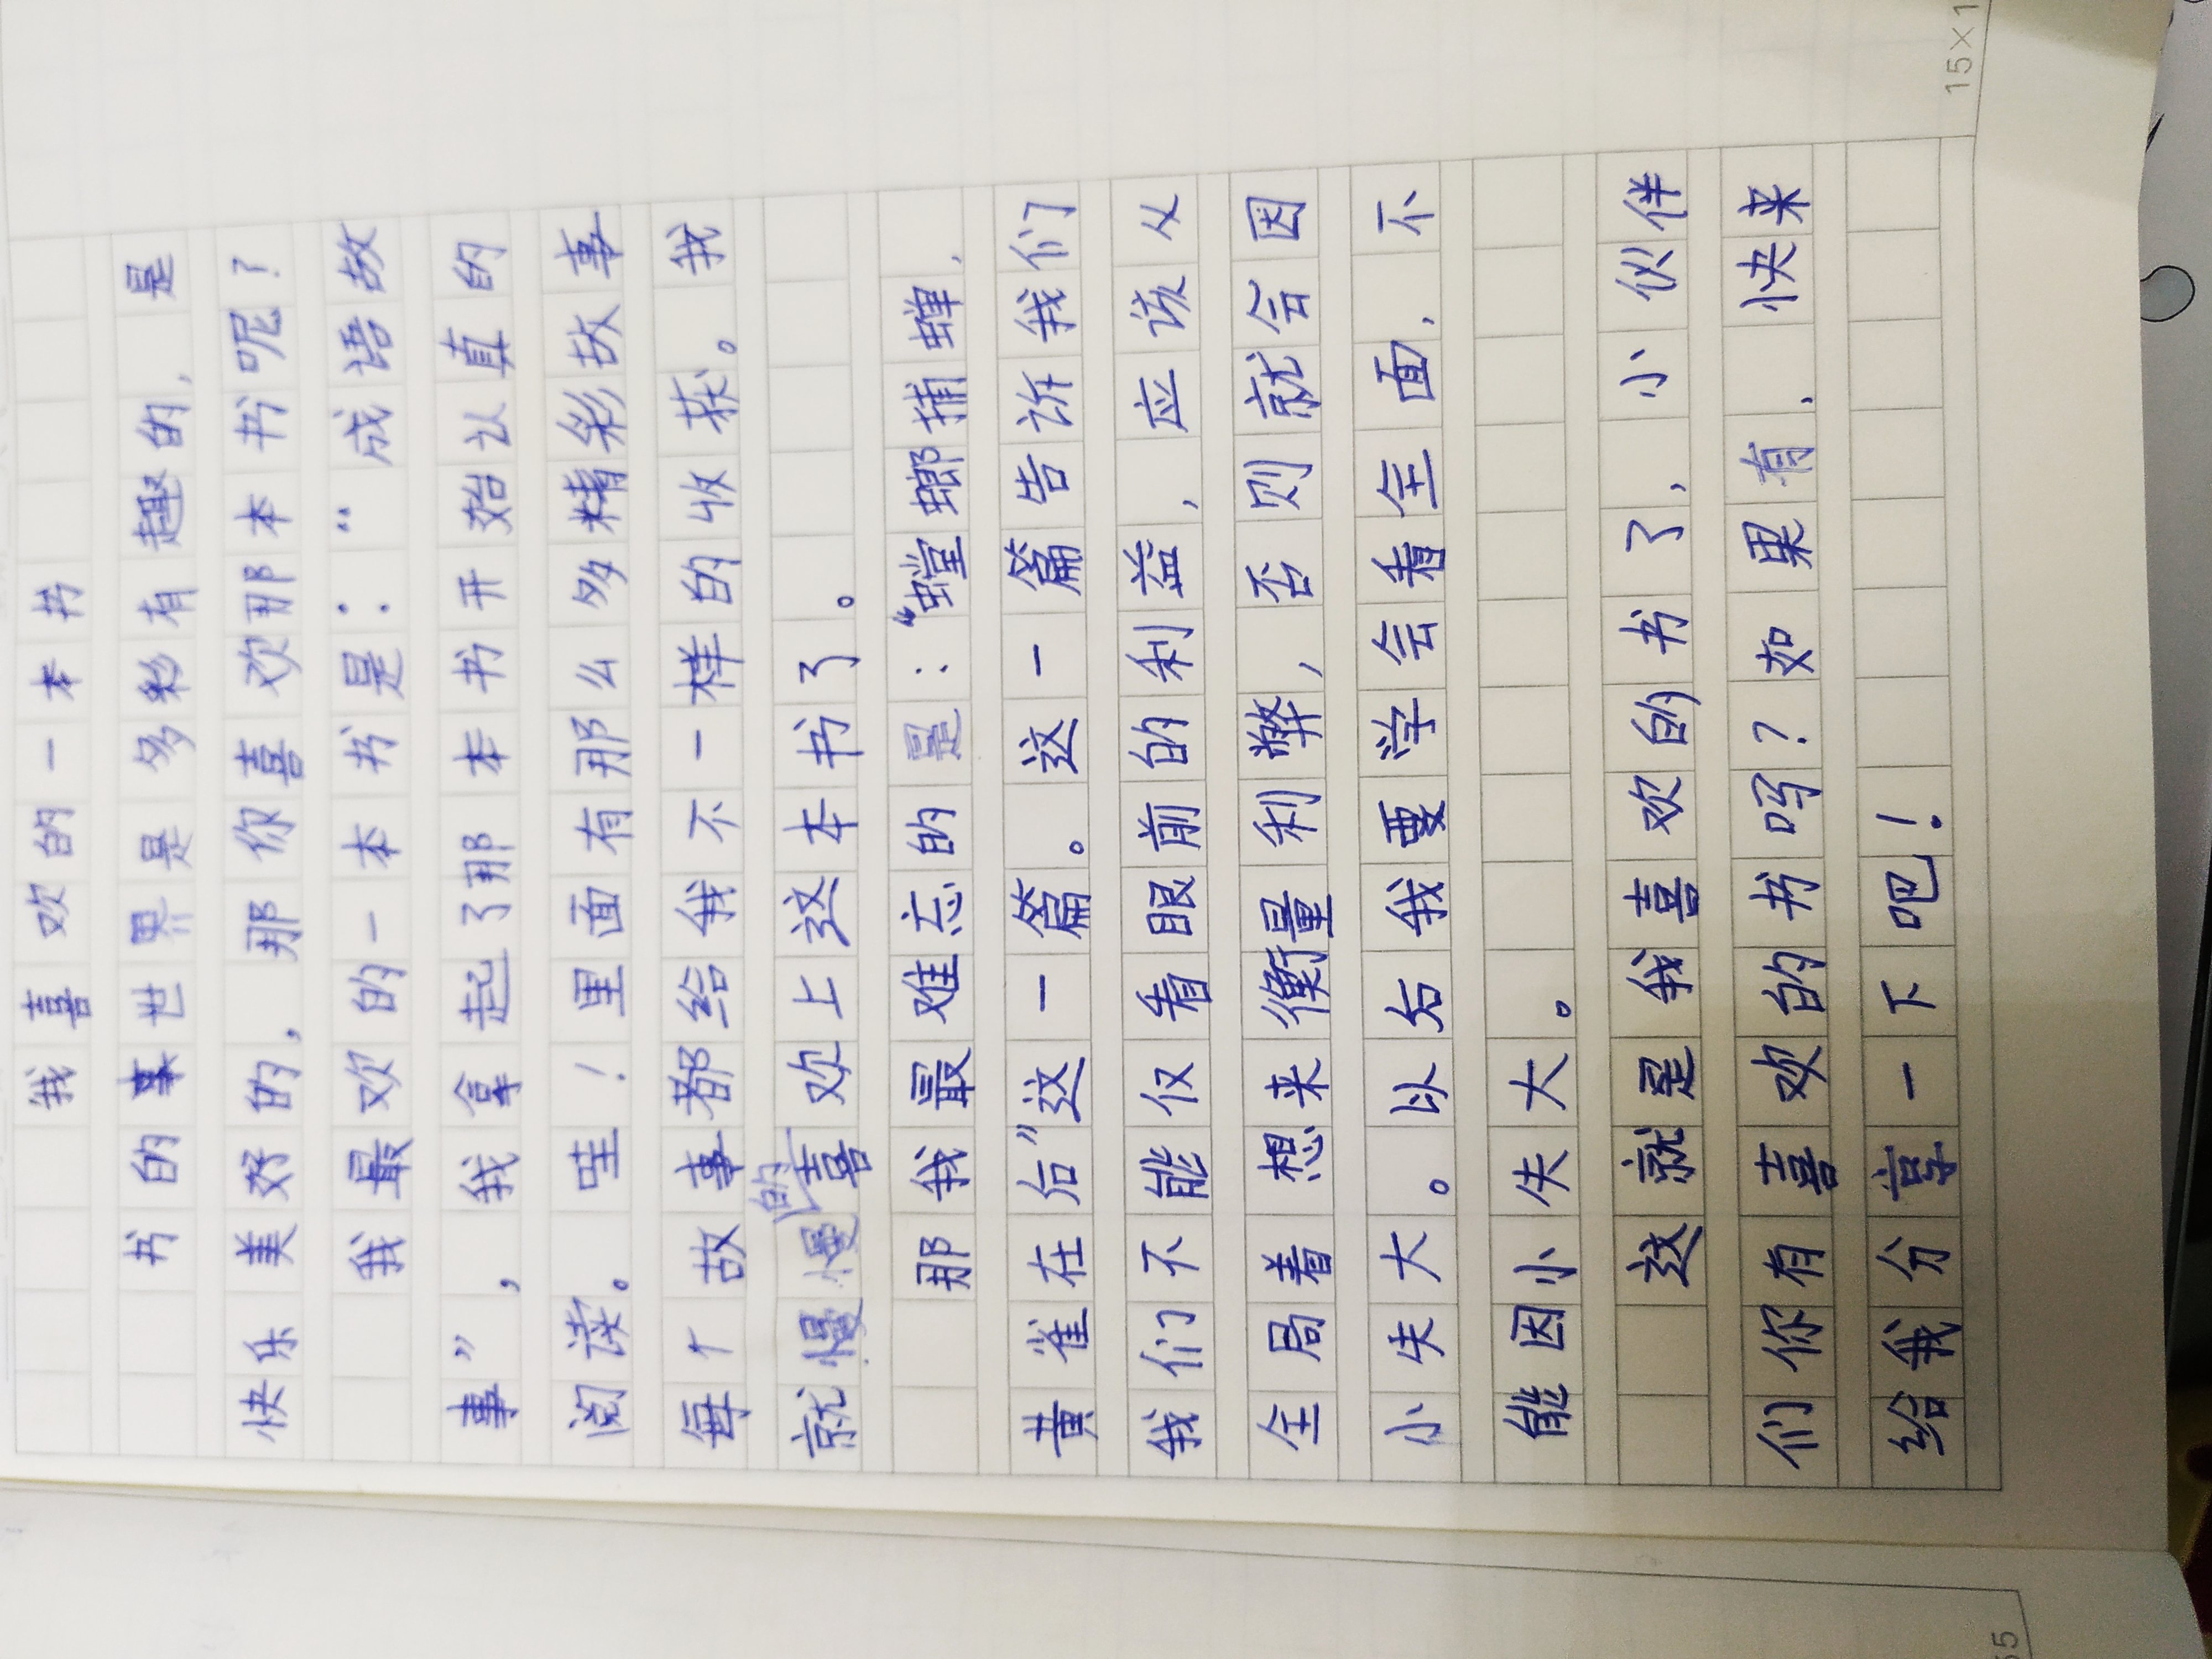 我喜欢的一本书
书的事世界是多彩有趣的，是
快乐美好的，那你喜欢那本书呢？
我最欢的一本书是：“成语故
事”，我拿起了那本书开始认真的
阅读。哇！里面有那么多精彩故事
每个故事都给我不一样的收获。我
就慢慢的喜欢上这本书了。
那我最难忘的是：“螳螂捕蝉，
黄雀在后”这一篇。这一篇告诉我们
我们不能仅看眼前的利益，应该从
全局着想来衡量利弊，否则就会因
小失大。以后我要学会看全面，不
能因小失大。
这就是我喜欢的书了，小伙伴
们你有喜欢的书吗？如果有，快来
给我分享一下吧！
15×1